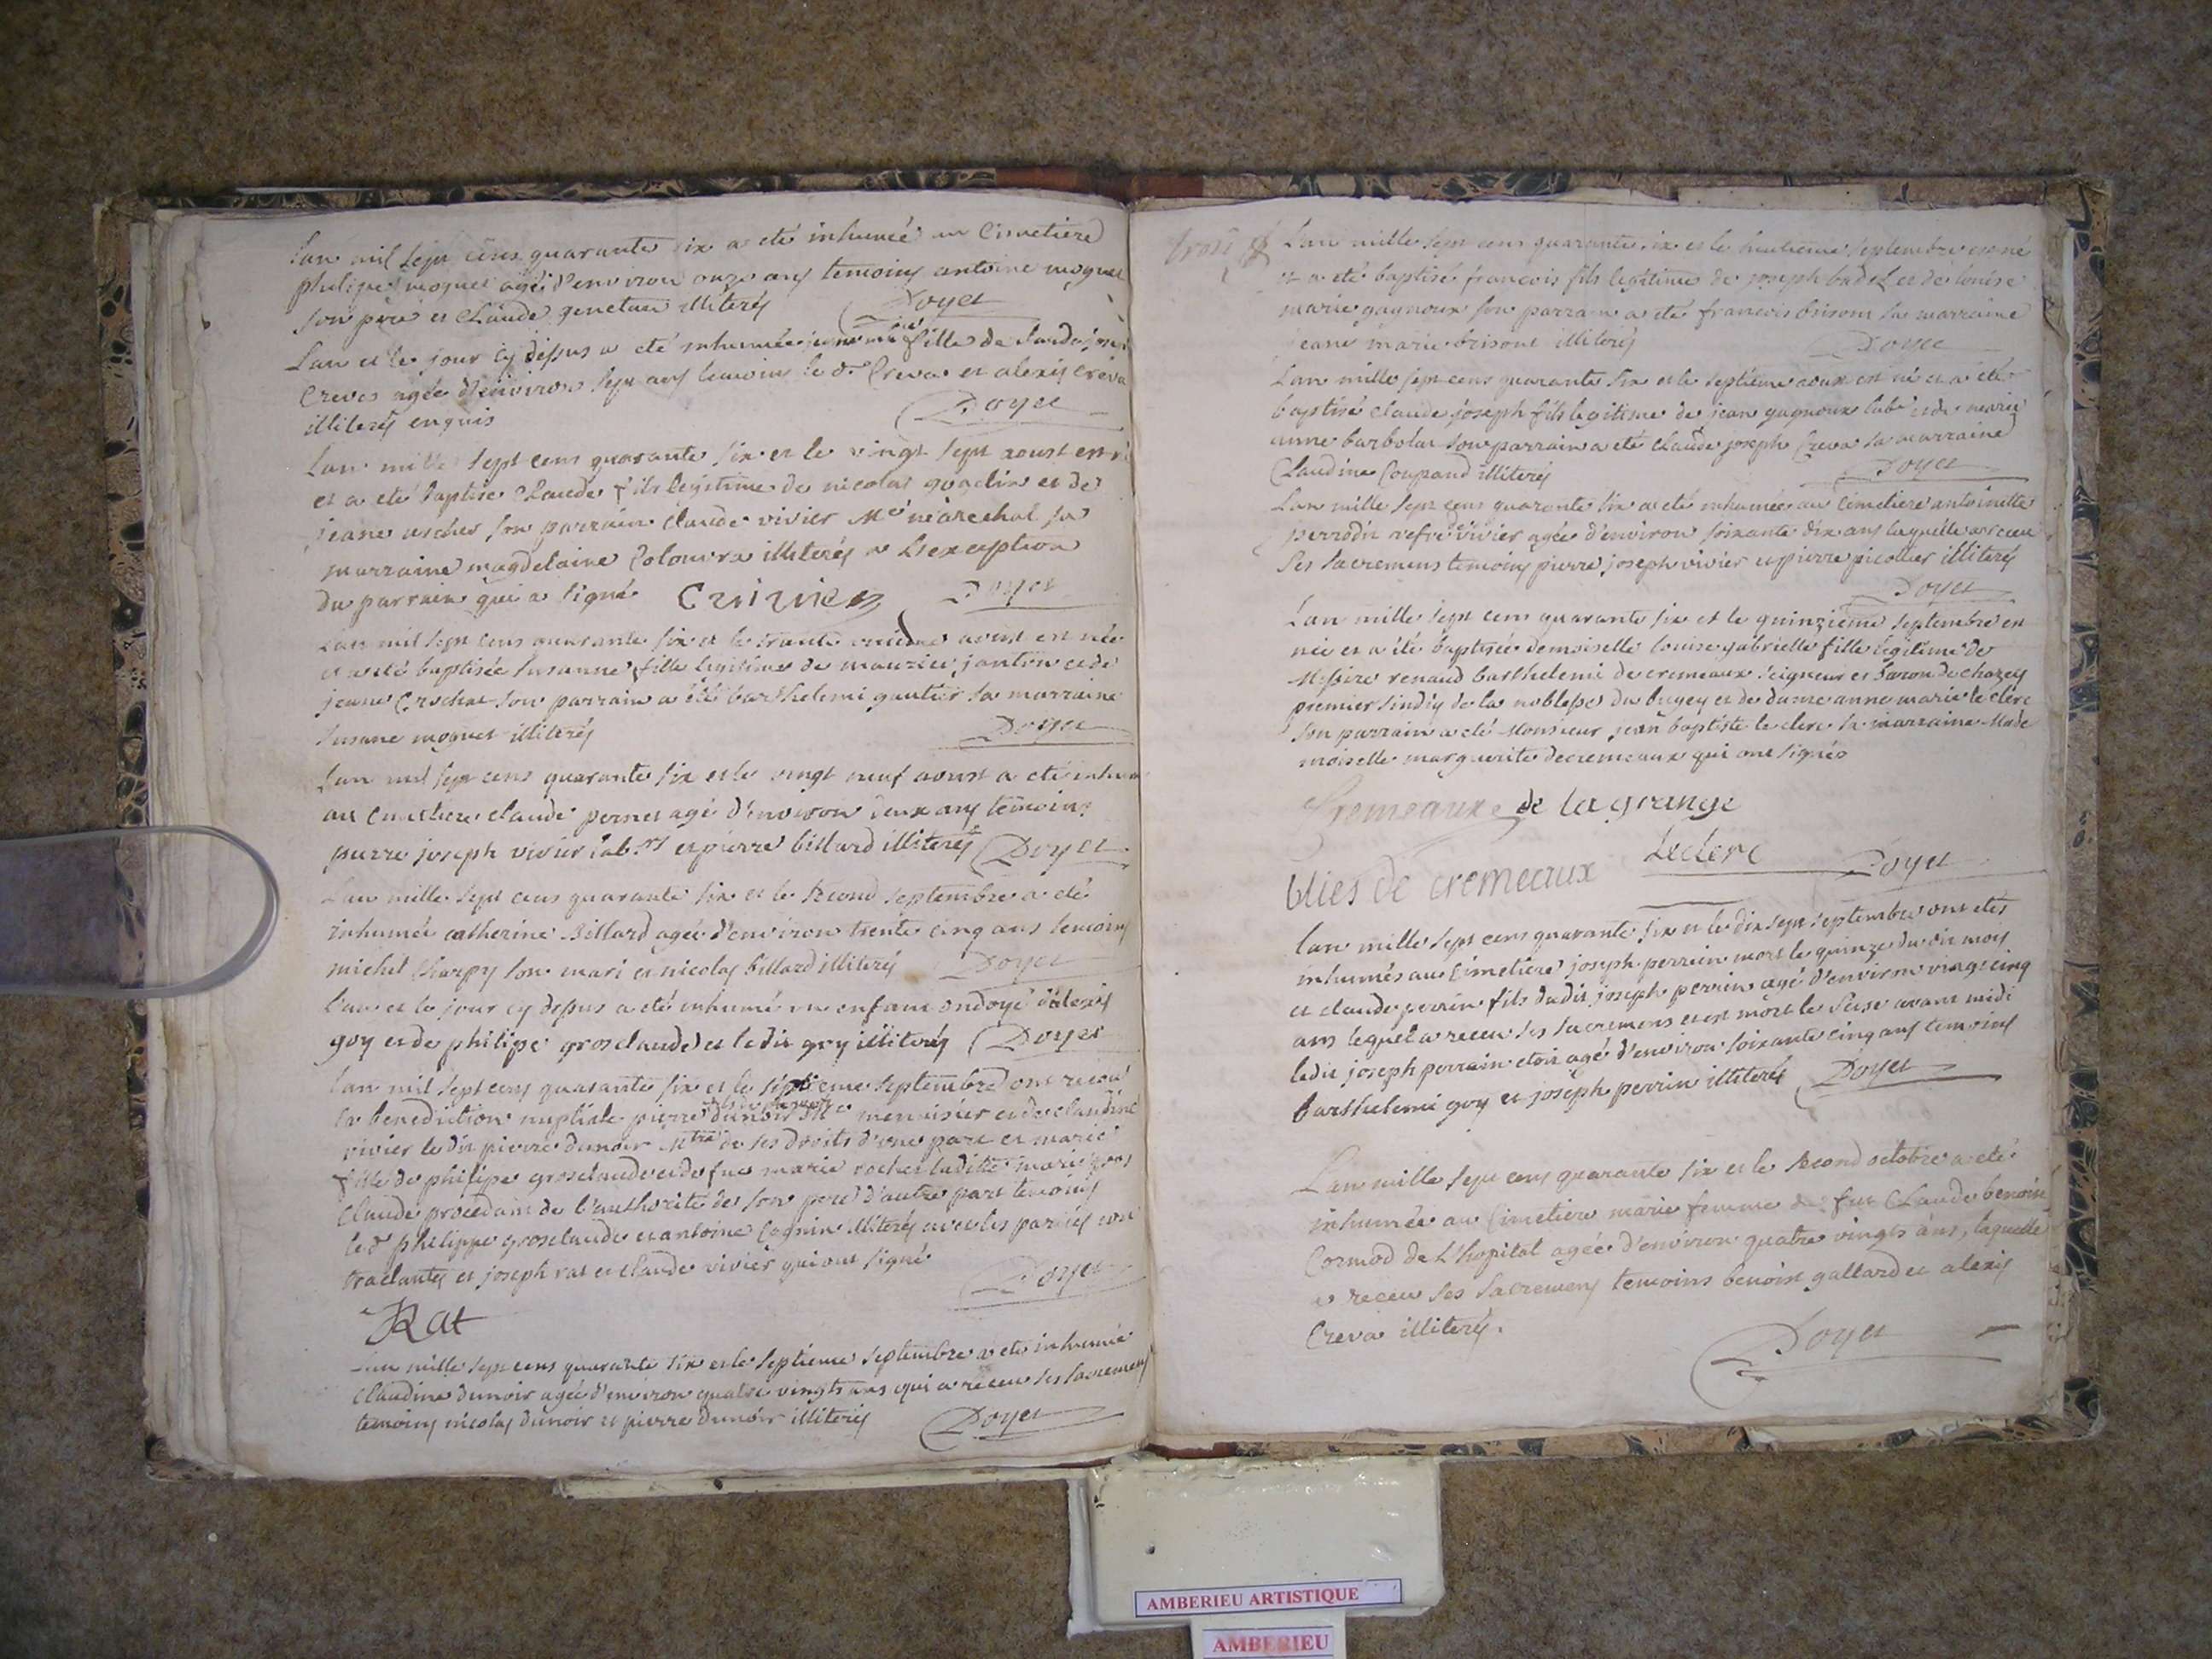 Lan mil sept cens quarante six a eté inhumée au Cimetiere
philipe moguet agéé d'environ onze ans temoins antoine moguet
son pere et Claude genetan illiterés Doyet
Lan et le jour cy dessus a eté inhumée fille de
Creva agée d'environ sept ans temoins le d. Creva et alexis creva
illiterés enquis Doyet
Lan mille sept cens quarante six et le vingt sept aoust est né
et a eté baptise Claude fils legitime de nicolas goaclin et de
jeane ascher son parrain claude vivier Me maréchal sa
marraine magdelaine Colomra illiterés a L'exception
du parrain qui a signé CviviEr Doyet
Lan mil sept cens quarante six et le trante unieme aoust est née
et a eté baptisée susanne fille legitime de maurice jantin et de
jeane Crochat son parrain a été barthelemi gautier sa marraine
susane moguet illiterés Doyet
Lan mil sept cens quarante six et le vingt neuf aoust a eté inhumé
au Cimetiere claude pernet agé d'environ deux ans temoins
pierre joseph vivier lab.rs et pierre billard illiterés Doyet
Lan mille sept cens quarante six et le second septembre a eté
inhumée catherine Billard agée d'environ trente cinq ans temoins
michel Charpy son mari et nicolas billard illiterés Doyet
l'an et le jour cy dessus a eté inhumé un enfant ondoyé d'alexis
goy et de philipe grosclaude et le dit goy illiterés Doyet
lan mil sept cens quarante six et le septieme septembre ont receu
la benediction nuptiale pierre dunoir menuisier et de claudine
vivier le dit pierre dunoir Mtre de ses droits d'une part et marie
fille de philipe grosclaude et de fue marie rochet ladite marie gros
claude procedant de l'authorité de son pere d'autre part temoins
le d. philippe grosclaude et antoine Cognin illiterés avec les parties con
tractantes et joseph rat et claude vivier qui ont signé
Doyet
JRat
Lan mille sept cens quarante six et le septieme septembre a eté inhumée
Claudine dunoir agée d'environ quatre vingts ans qui a receu ses sacremens
temoins nicolas dunoir et pierre dunoir illiterés Doyet
trois Lan mille sept cens quarante six et le huitieme septembre est né
et a eté baptisé francois fils legitime de joseph badel et de louise
marie gagnoux son parrain a eté francois brison sa marraine
jeane marie brison illiterés Doyet
Lan mille sept cens quarante six et le septieme aoust est né et a eté
baptisé claude joseph fils legitime de jean gagnoux lab.r et de marie
anne barbolat son parrain a eté claude joseph Creva sa marraine
Claudine Coupand illiterés Doyet
Lan mille sept cens quarante six a eté inhumée au Cimetiere antoinette
perrodin vefve vivier agée d'environ soixante dix ans laquelle a receu
ses sacremens temoins pierre joseph vivier et pierre picollier illiterés
Doyet
Lan mille sept cens quarante six et le quinzieme septembre est
née et a été baptisée demoiselle louise gabrielle fille légitime de
Messire renaud barthelemi de cremeaux seigneur et baron de chazey
premier sindiq de la noblesse du bugey et de dame anne marie le clerc
son parrain a eté Monsieur jean baptiste le clerc sa marraine Made
moiselle marguerite decremeaux qui ont signés
Cremeaux de la grange
Leclerc
de cremeaux Doyet
lan mille sept cens quarante six et le dix sept septembre ont etés
inhumés au Cimetiere joseph perrein mort le quinze du dit mois
et claude perrin fils dudit joseph perrin agé d'environ vingt cinq
ans lequel a receu ses sacremens et est mort le seise avant midi
ledit joseph perrein etoit agé d'environ soixante cinq ans temoins
barthelemi goy et joseph perrin illiterés Doyet
Lan mille sept cens quarante six et le second octobre a eté
inhumée au Cimetiere marie femme de fut Claude benoist
Cormod de L'hopital agée d'environ quatre vingts ans, laquelle
a receu ses sacremens temoins benoist gallard et alexis
Creva illiterés.
Doyet
AMBERIEU ARTISTIQUE
AMBERIEU